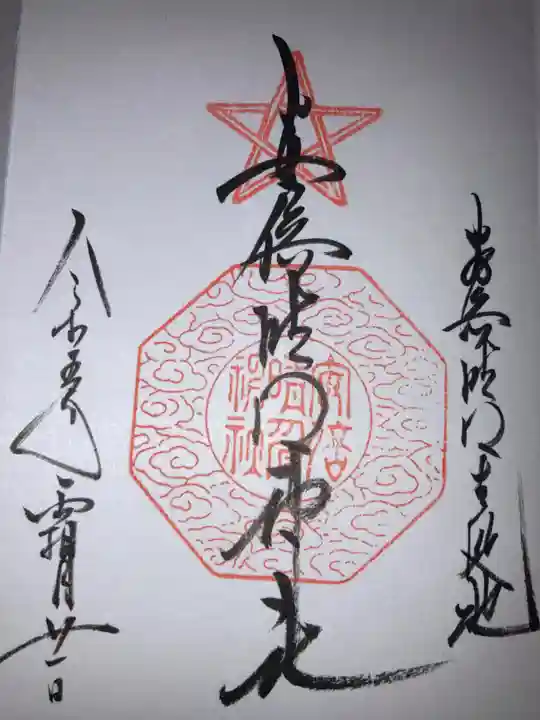 安倍晴明生誕地
安倍晴明神社
令和五年霜月廿一日
安倍
晴明
神社